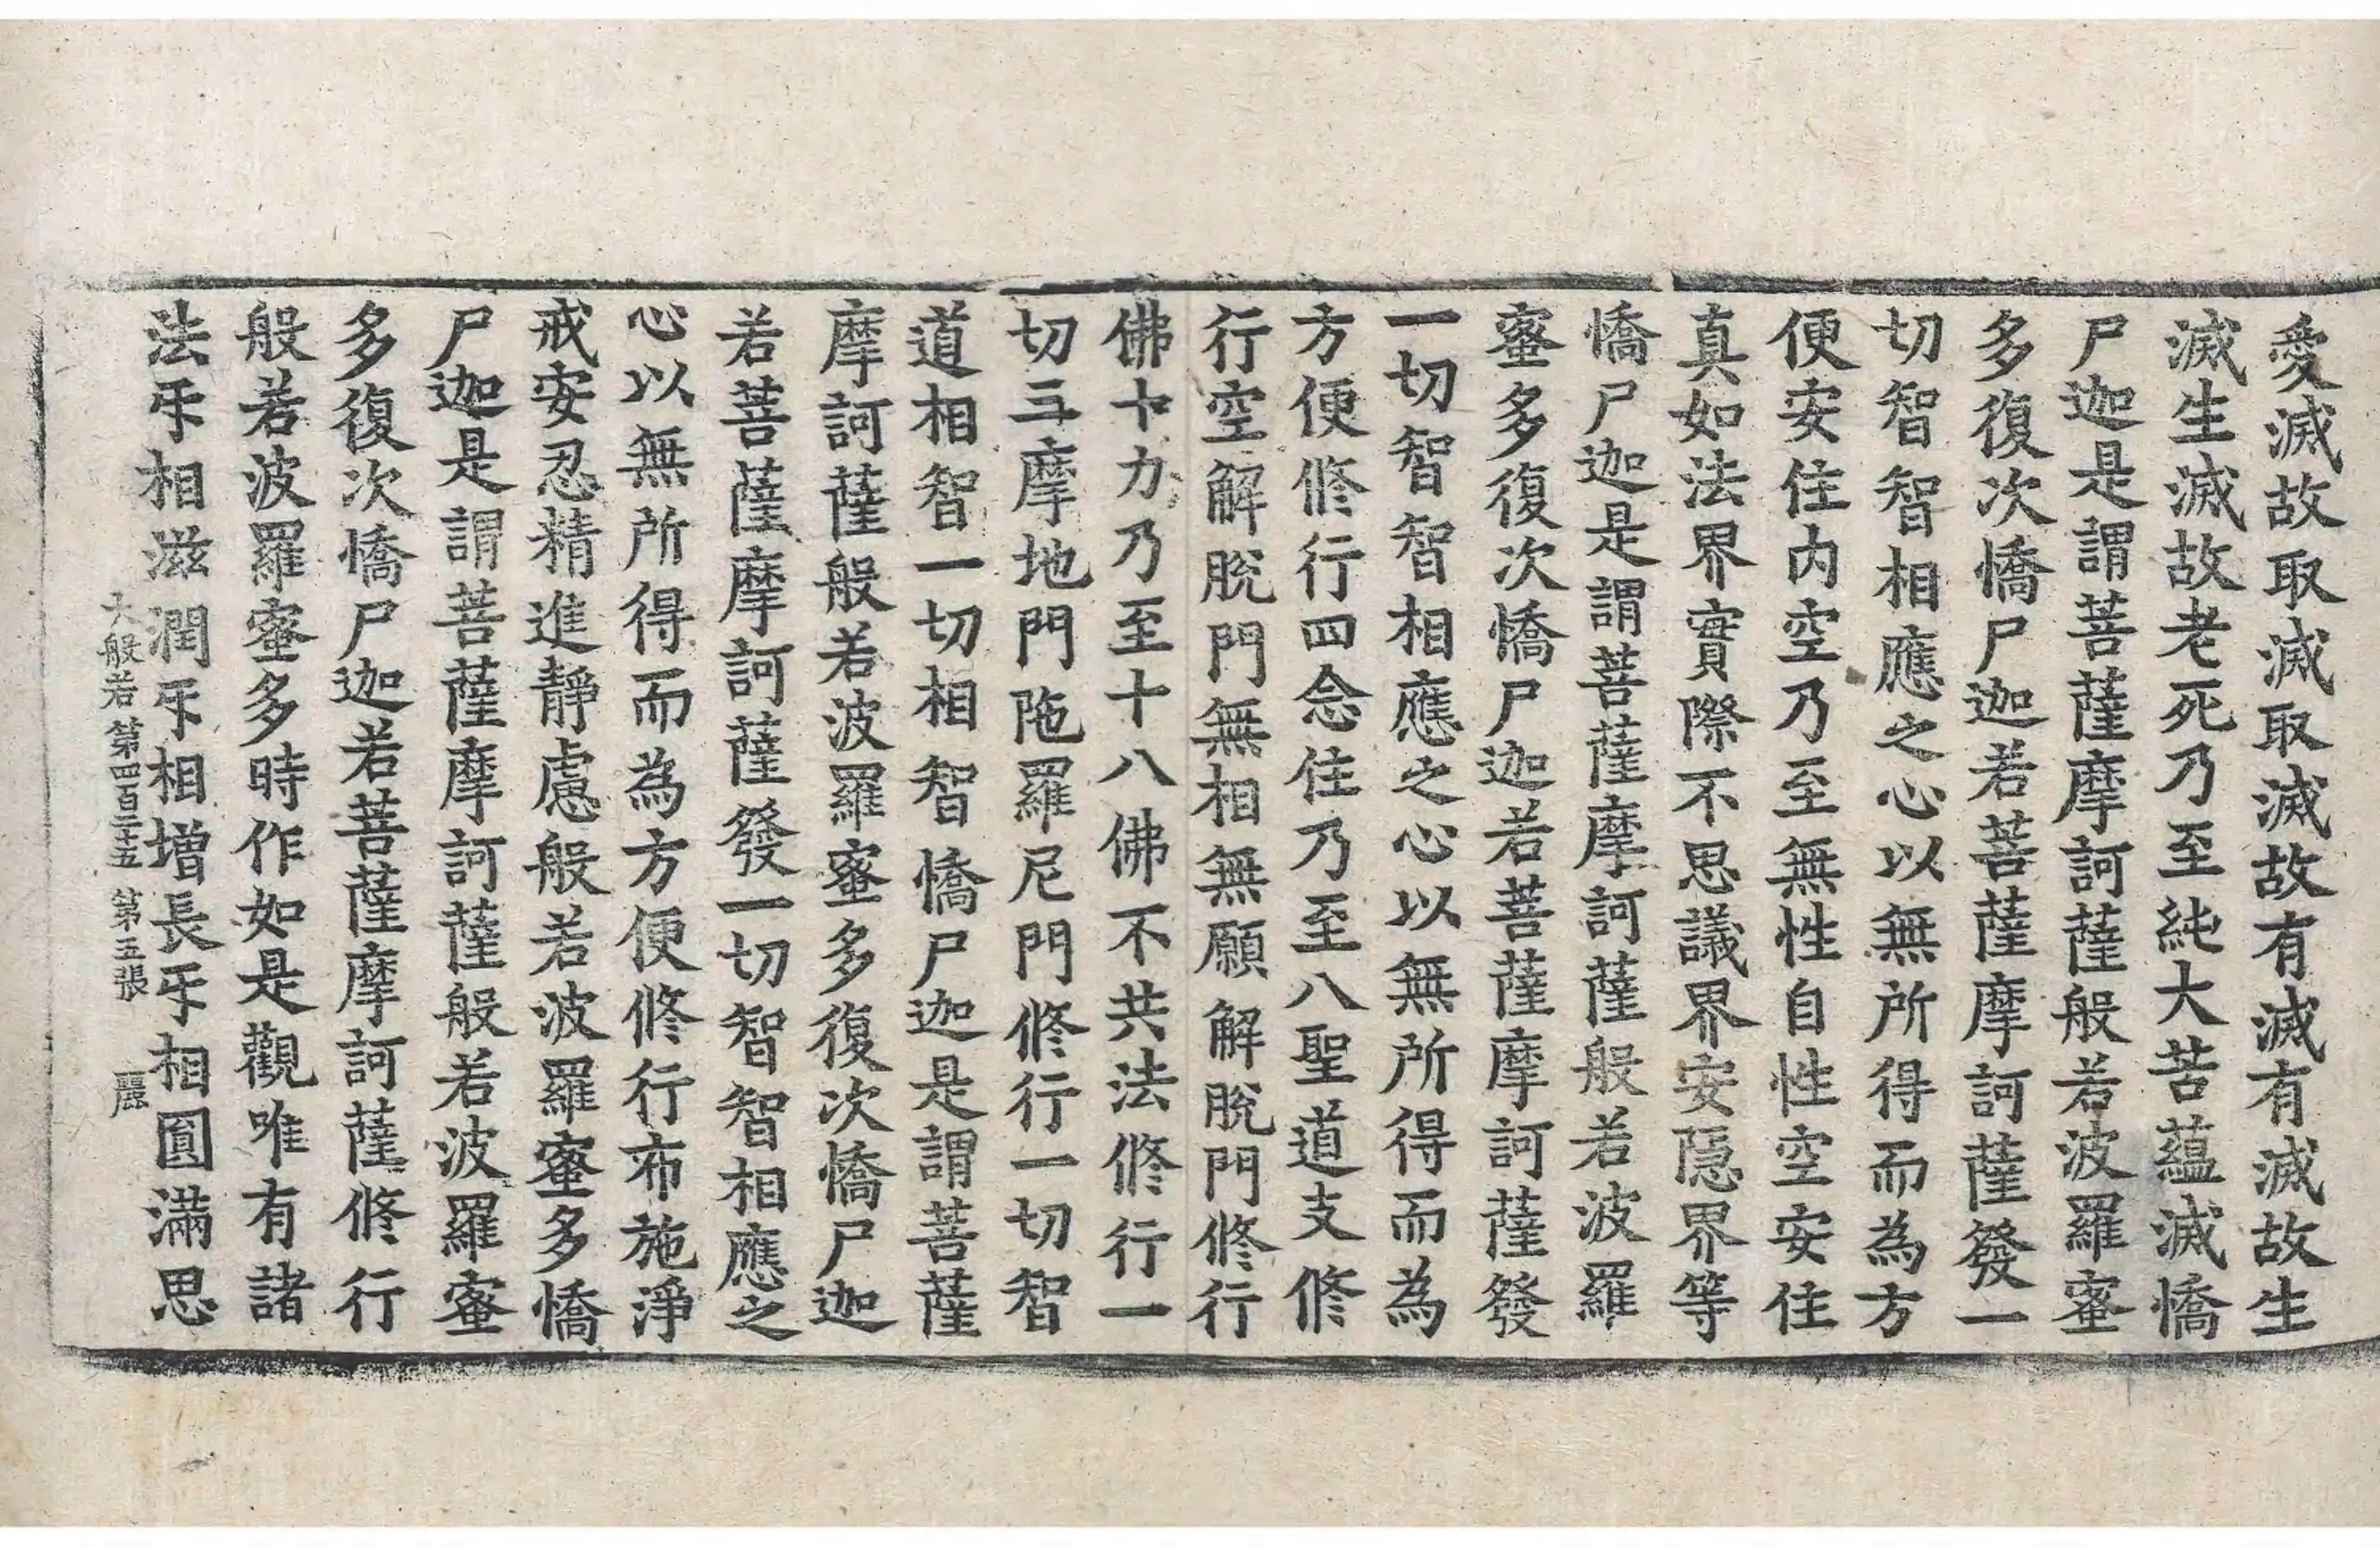 愛滅故取滅取滅故有滅有滅故生
滅生滅故老死乃至純大苦蘊滅憍
尸迦是謂菩薩摩訶薩般若波羅蜜
多復次憍尸迦若菩薩摩訶薩發一
切智智相應之心以無所得而為方
便安住内空乃至無性自性空安住
真如法界實際不思議界安隱界等
憍尸迦是謂菩薩摩訶薩般若波羅
蜜多復次憍尸迦若菩薩摩訶薩發
一切智智相應之心以無所得而為
方便修行四念住乃至八聖道支修
行空解脫門無相無願解脫門修行
佛十力乃至十八佛不共法修行一
切三摩地門陁羅尼門修行一切智
道相智一切相智憍尸迦是謂菩薩
摩訶薩般若波羅蜜多復次憍尸迦
若菩薩摩訶薩發一切智智相應之
心以無所得而為方便修行布施淨
戒安忍精進靜慮般若波羅蜜多憍
尸迦是謂菩薩摩訶薩般若波羅蜜
多復次憍尸迦若菩薩摩訶薩修行
般若波羅蜜多時作如是觀唯有諸
法㸦相滋潤㸦相增長㸦相圓滿思
大般若第四百二十五 第五張 麗